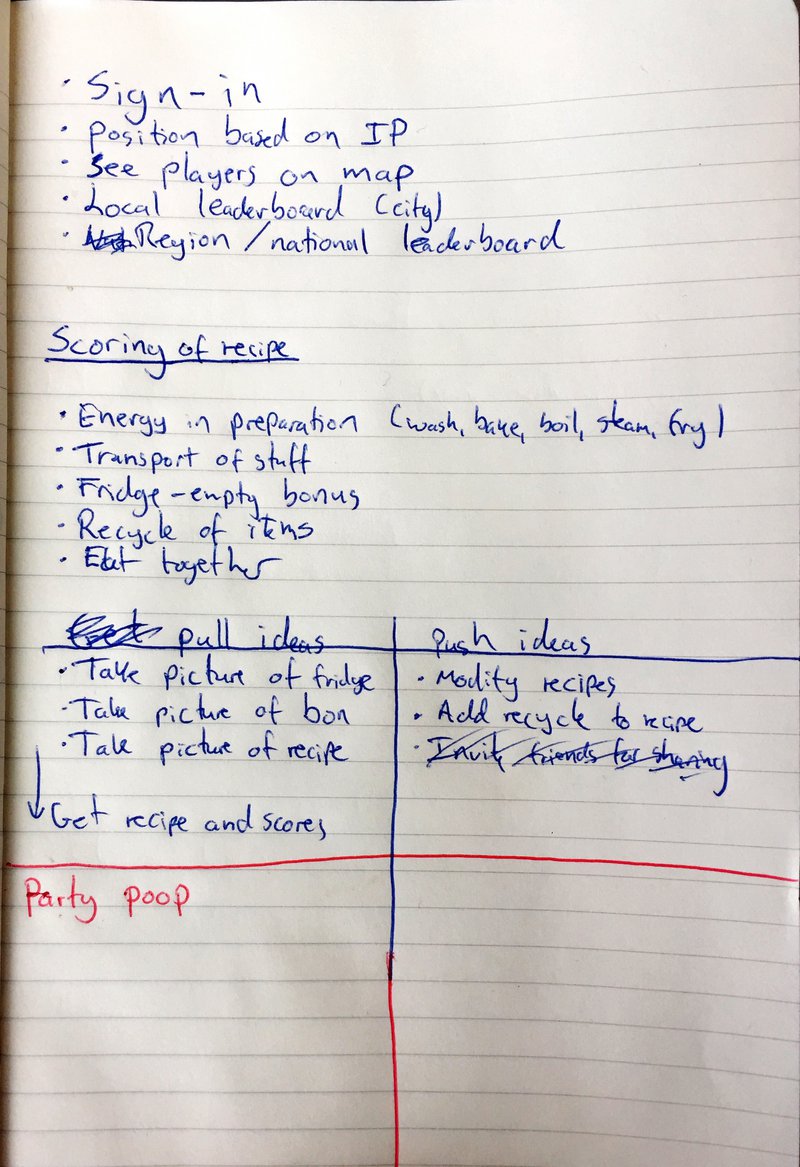 · Sign-in
· Position based on IP
· See players on map
· Local leaderboard (city)
· Region/national leaderboard
Scoring of recipe
· Energy in preparation (wash, bake, boil, steam, fry)
· Transport of stuff
· Fridge-empty bonus
· Recycle of items
· Eat together
pull ideas
· Take picture of fridge
· Take picture of bon
· Take picture of recipe
Get recipe and scores
Push ideas
· Modify recipes
· Add recycle to recipe
· Invite friends for sharing
Party poop